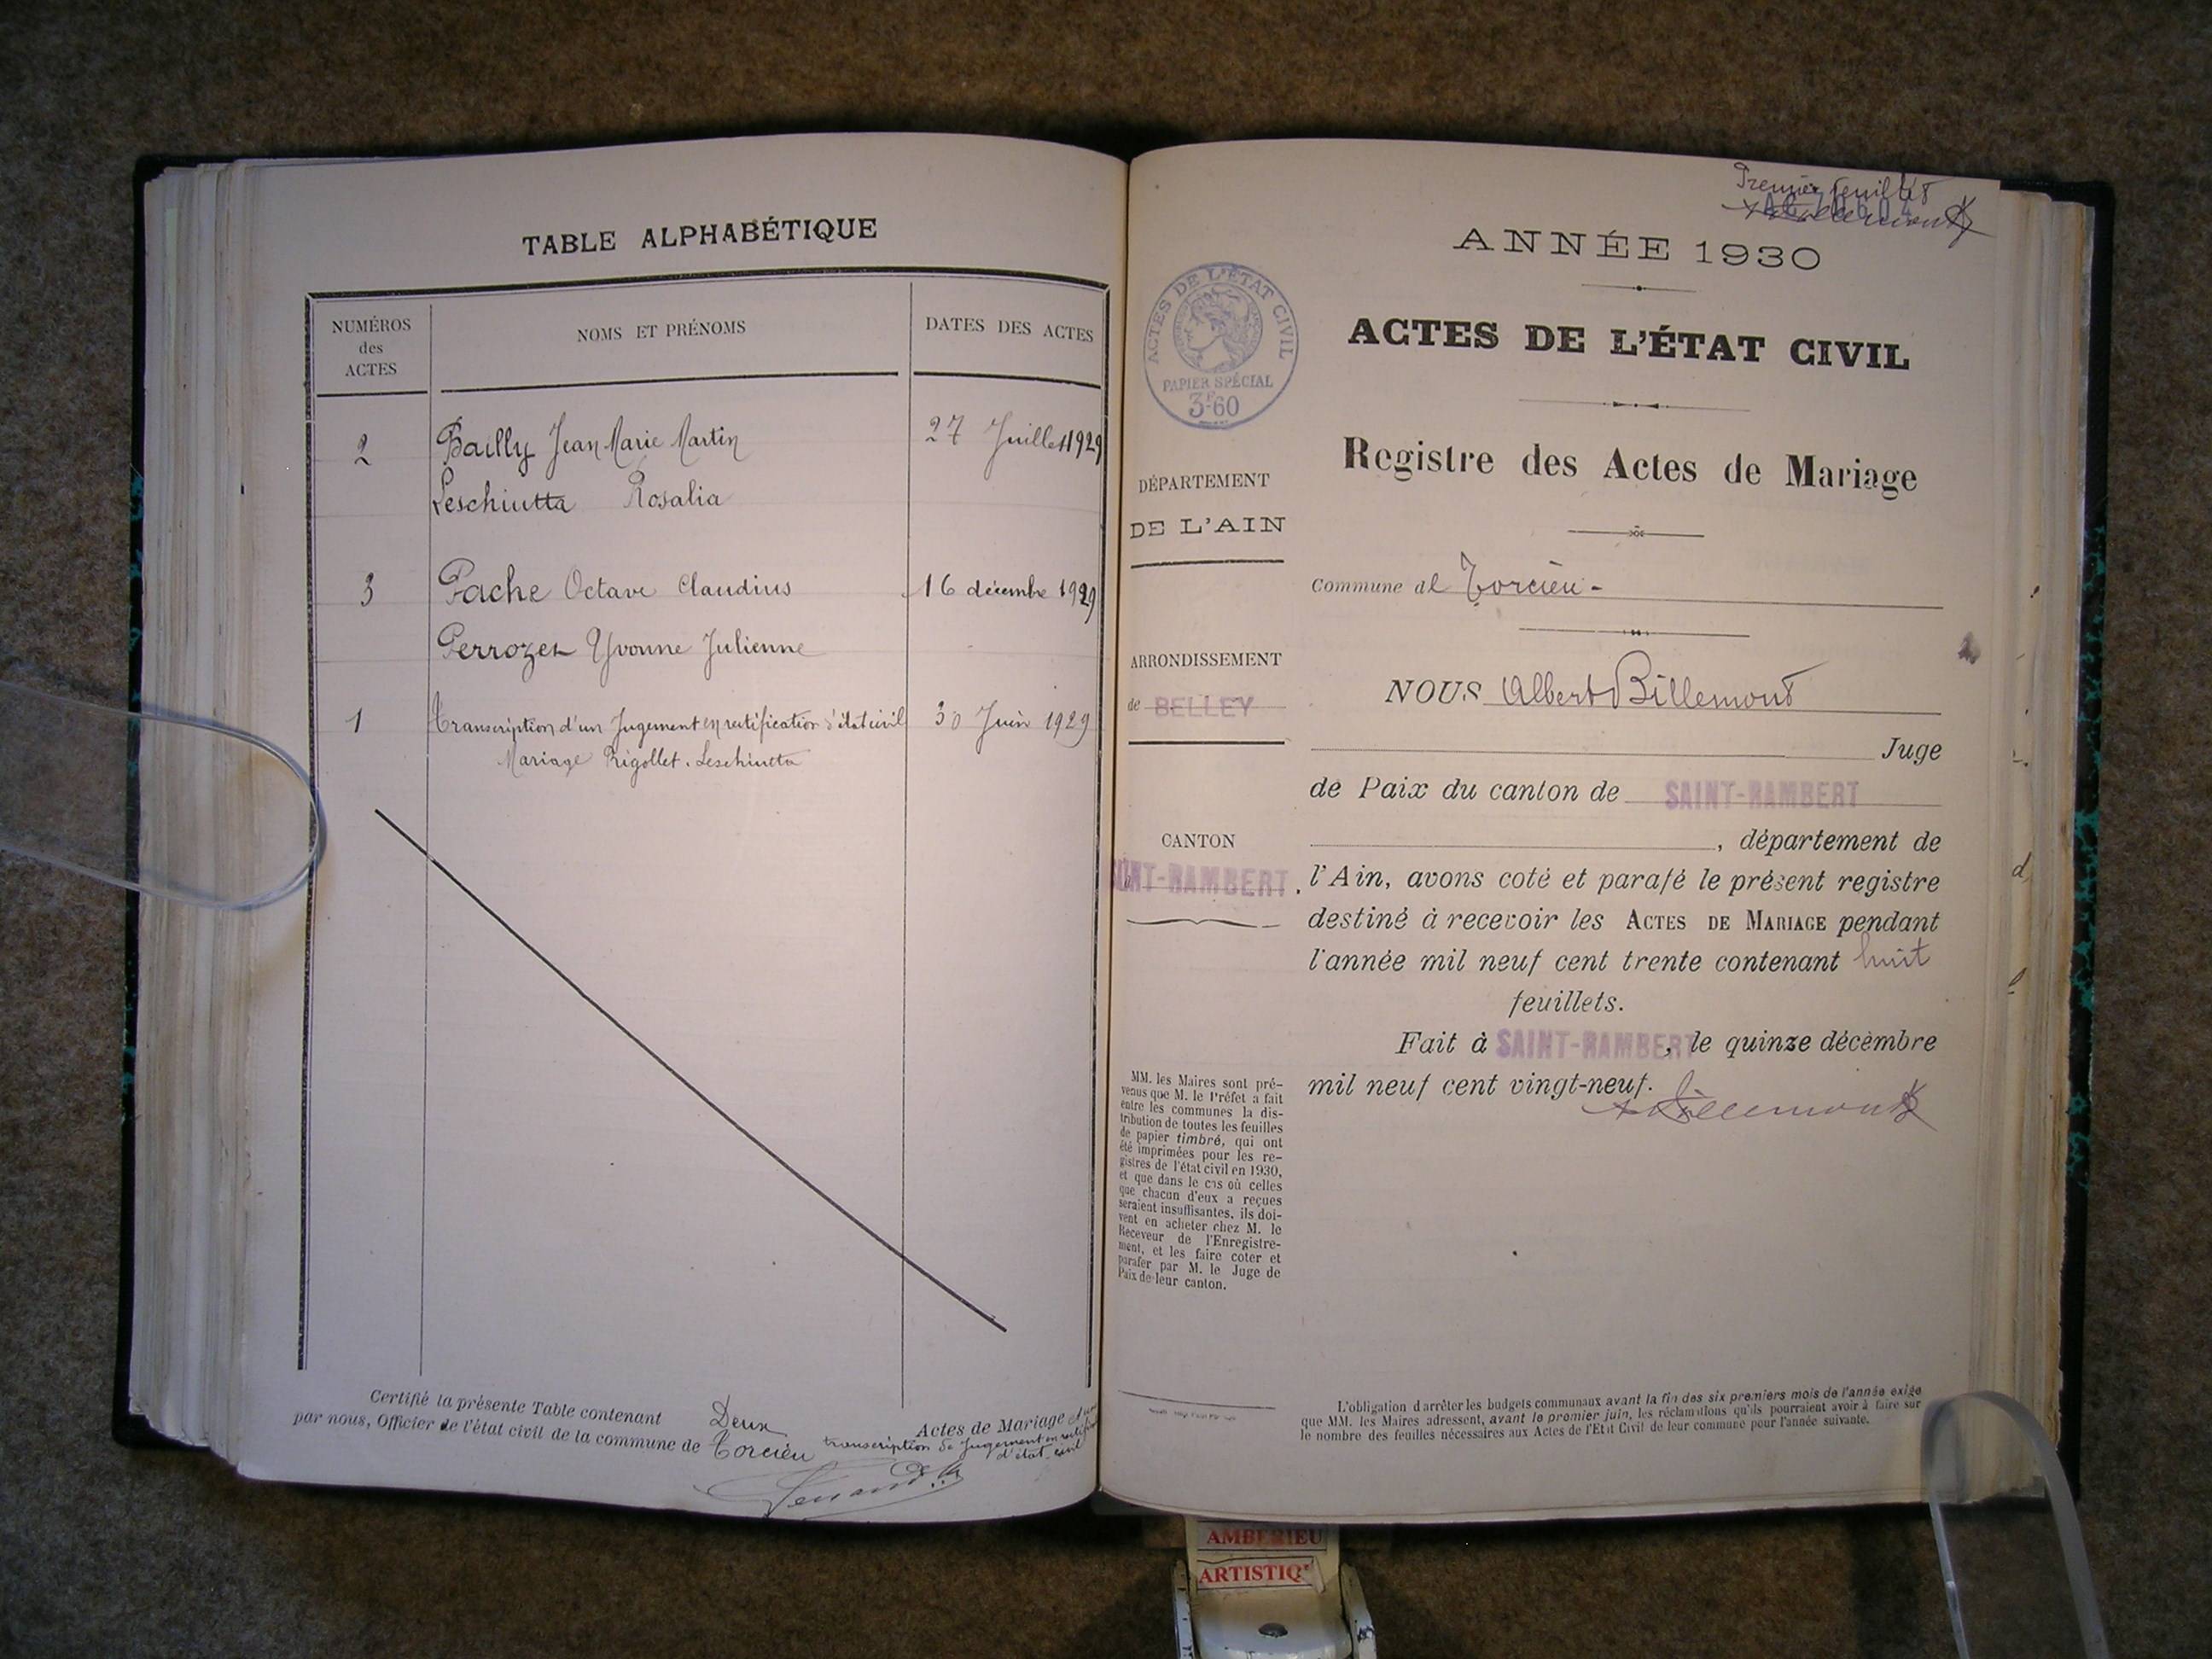 TABLE ALPHABÉTIQUE
NUMÉROS
des
ACTES
NOMS ET PRÉNOMS
DATES DES ACTES
2 Bailly Jean Marie Martin 27 Juillet 1929
Leschiutta Rosalia
3 Pache Octave Claudius 16 décembre 1929
Perrozet Yvonne Julienne
1 Transcription d'un Jugement en rectification d'état civil 30 Juin 1929
Mariage Rigollet. Leschiutta
Certifié la présente Table contenant Deux Actes de Mariage
par nous, Officier de l'état civil de la commune de Torcieu
transcription de Jugement en
d'état civil
Premier feuillet
ANNÉE 1930
ACTES DE L'ÉTAT CIVIL
PAPIER SPÉCIAL
3F60
ACTES DE L'ÉTAT CIVIL
Registre des Actes de Mariage
DÉPARTEMENT
DE L'AIN
Commune de Torcieu -
ARRONDISSEMENT
de BELLEY
NOUS Albert Billemont
Juge
de Paix du canton de SAINT-RAMBERT
CANTON
INT-RAMBERT
, département de
l'Ain, avons coté et parafé le présent registre
destiné à recevoir les ACTES DE MARIAGE pendant
l'année mil neuf cent trente contenant huit
feuillets.
Fait à SAINT-RAMBERT, le quinze décembre
mil neuf cent vingt-neuf.
MM. les Maires sont pré-
venus que M. le Préfet a fait
entre les communes la dis-
tribution de toutes les feuilles
de papier timbré, qui ont
été imprimées pour les re-
gistres de l'état civil en 1930,
et que dans le cas où celles
que chacun d'eux a reçues
seraient insuffisantes, ils doi-
vent en acheter chez M. le
Receveur de l'Enregistre-
ment, et les faire coter et
parafer par M. le Juge de
Paix de leur canton.
L'obligation d'arrêter les budgets communaux avant la fin des six premiers mois de l'année exige
que MM. les Maires adressent, avant le premier juin, les réclamations qu'ils pourraient avoir à faire sur
le nombre des feuilles nécessaires aux Actes de l'Etat Civil de leur commune pour l'année suivante.
AMBERIEU
ARTISTIQ